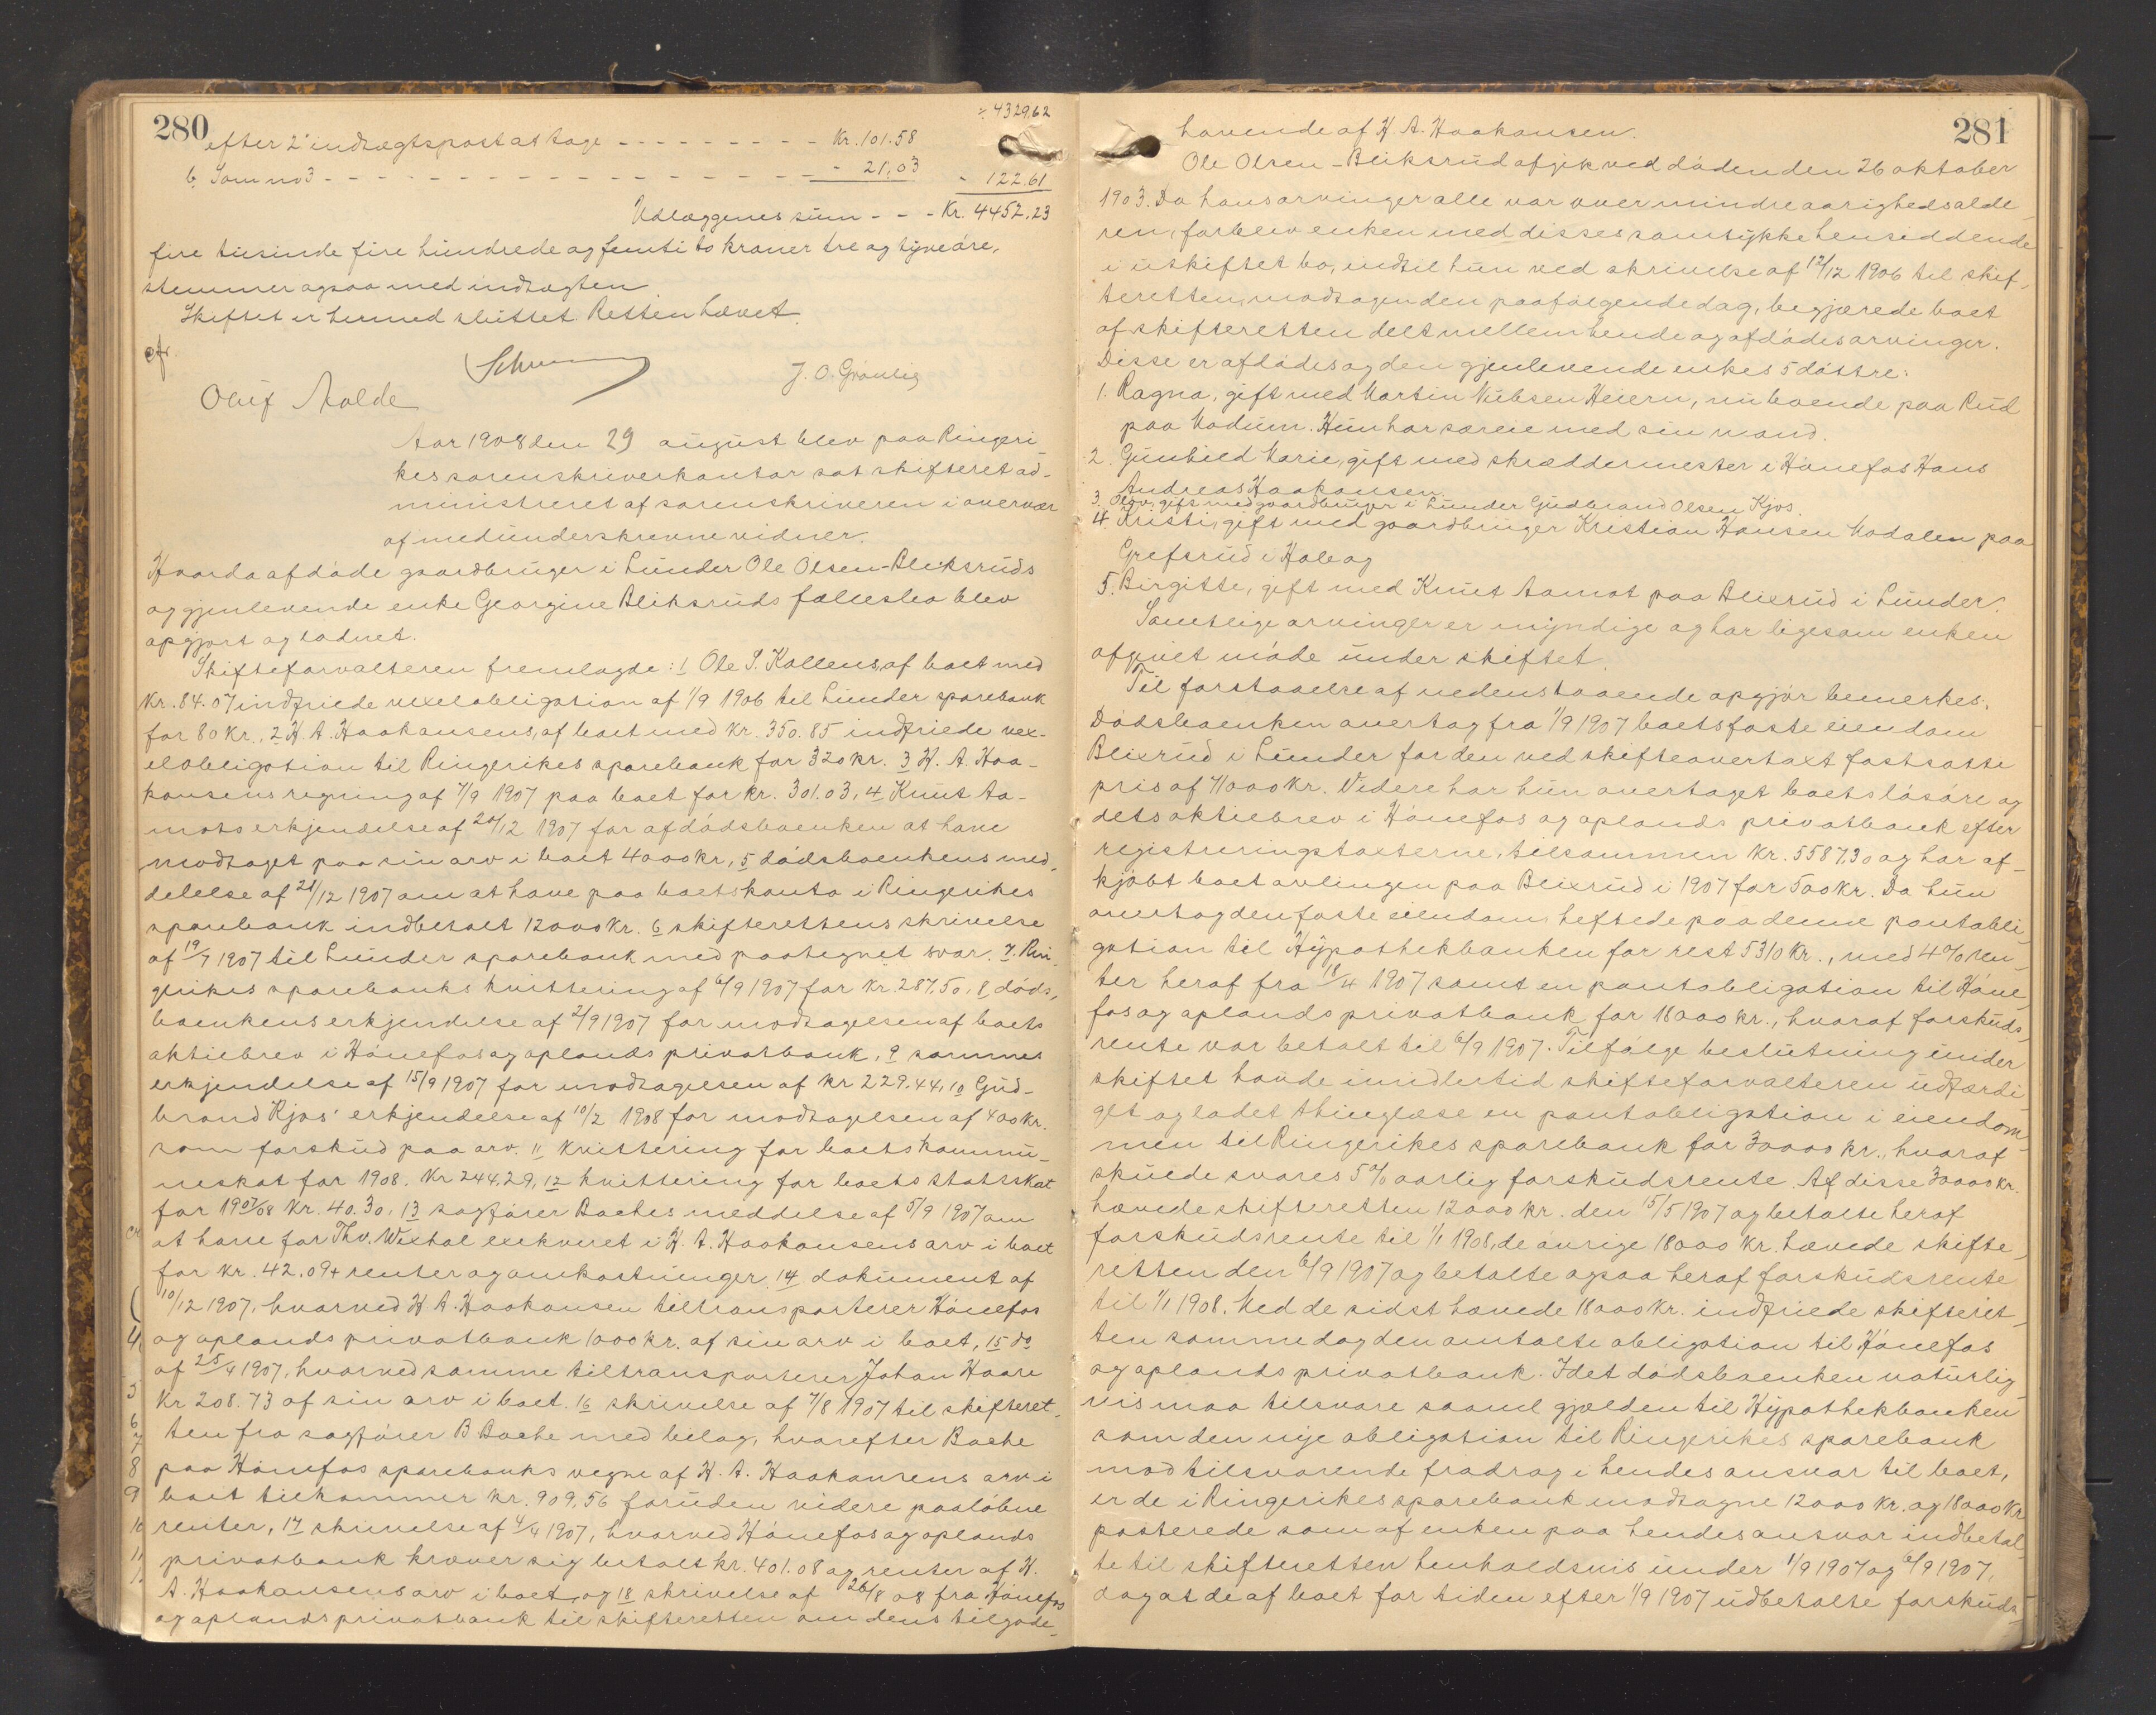 280
÷ 4329.62
efter 2' indtægtspost at tage - - - - - - - - - Kr. 101.58
b, Som no 3 - - - - - - - - - - - - - - - - - - - 21,03 - 122.61
Udlæggenes sum - - - Kr. 4452.23
fire tusinde fire hundrede og femti to kroner tre og tyve øre,
stemmer ogsaa med indtægten.
Skiftet er hermed sluttet. Retten hævet.
J. O. Gravlig
Oluf Molde
Aar 1908 den 29 august blev paa Ringeri-
kes sorenskriverkontor sat skifteret ad-
ministreret af sorenskriveren i overvær
af medunderskrevne vidner.
Hvorda afdøde gaardbruger i Lunder Ole Olsen-Bliksruds
og gjenlevende enke Georgine Bliksruds fællesbo blev
opgjort og lodnet.
Skifteforvalteren fremlagde: 1 Ole P. Kollens, af boet med
Kr. 84.07 indfriede vexelobligation af 1/9 1906 til Lunder sparebank
for 80 kr., 2 H. A. Haakansens, af boet med Kr. 350.85 indfriede vex-
elobligation til Ringerikes sparebank for 320 kr. 3 H. A. Haa-
kansens regning af 7/9 1907 paa boet for kr. 301.03, 4 Knut Aa-
mots erkjendelse af 20/12 1907 for af dødsboenken at have
modtaget paa sin arv i boet 4000 kr, 5 dødsboenkens med-
delelse af 21/12 1907 om at have paa boets konto i Ringerikes
sparebank indbetalt 12000 kr. 6 skifterettens skrivelse
af 19/7 1907 til Lunder sparebank med paategnet svar. 7. Rin-
gerikes sparebanks kvittering af 6/9 1907 for Kr. 287.50, 8 døds-
boenkens erkjendelse af 2/9 1907 for modtagelsen af boets
aktiebrev i Hønefos og oplands privatbank, 9 sammes
erkjendelse af 15/9 1907 for modtagelsen af kr 229.44, 10 Gud-
brand Kjos' erkjendelse af 10/2 1908 for modtagelsen af 400 kr.
som forskud paa arv. 11 kvittering for boets kommu-
neskat for 1908. Kr 244.29, 12 kvittering for boets statsskat
for 1907/08 Kr. 40.30. 13 sagfører Baches meddelse af 5/9 1907 om
at have for Thv. Wixhal exekveret i H. A. Haakansens arv i boet
for kr. 42.09 + renter og omkostninger, 14 dokument af
10/12 1907, hvorved H A. Haakansen tiltransporterer Hønefos
og oplands privatbank 1000 kr. af sin arv i boet, 15 do
af 25/4 1907, hvorved samme tiltransporterer Johan Haare
Kr 208.73 af sin arv i boet. 16 skrivelse af 7/8 1907 til skifteret-
ten fra sagfører B. Bache med bilag, hvorefter Bache
paa Hønefos sparebanks vegne af H. A. Haakansens arv i
boet tilkommer Kr. 909,56 foruden videre paaløbne
renter, 17 skrivelse af 4/4 1907, hvorved Hønefos og oplands
privatbank kræver sig betalt kr. 401.08 og renter af H.
A. Haakansens arv i boet, og 18 skrivelse af 26/8 08 fra Hønefos
og oplands privatbank til skifteretten om dens tilgode-
281
havende af H. A. Haakansen.
Ole Olsen-Bliksrud afgik ved døden den 26 oktober
1903. Da hans arvinger alle var over mindreaarighedsalde-
ren, forblev enken med disses samtykke hensiddende
i uskiftet bo, indtil hun ved skrivelse af 12/12 1906 til skif-
teretten, modtagen den paafølgende dag, begjærede boet
af skifteretten delt mellem hende og afdødes arvinger.
Disse er afdødes og den gjenlevende enkes 5 døttre:
1. Ragna, gift med Martin Nubsen Heiern, nu boende paa Rud
paa Modum. Hun har særeie med sin mand.
2. Gunhild Marie, gift med skræddermester i Hønefos Hans
Andreas Haakansen.
3. Olava, gift med gaardbruger i Lunder Gudbrand Olsen Kjos.
4. Kristi, gift med gaardbruger Kristian Hansen Modalen paa
Grefsrud i Hole og
5. Birgitte, gift med Knut Aamot paa Blixrud i Lunder.
Samtlige arvinger er myndige og har ligesom enken
afgivet møde under skiftet.
Til forstaaelse af nedenstaaende opgjør bemerkes.
Dødsboenken overtog fra 1/9 1907 boets faste eiendom
Blixrud i Lunder for den ved skifteovertaxt fastsatte
pris af 71000 kr. Videre har hun overtaget boets løsøre og
dets aktiebrev i Hønefos og oplands privatbank efter
registreringstaxterne, tilsammen Kr. 5587.30 og har af-
kjøbt boet avlingen paa Blixrud i 1907 for 500 kr. Da hun
overtog den faste eiendom, heftede paa denne pantobli-
gation til Hypothekbanken for rest 5310 kr., med 4% ren-
ter heraf fra 18/4 1907 samt en pantobligation til Høne-
fos og oplands privatbank for 18000 kr., hvoraf forskuds-
rente var betalt til 6/9 1907. Tilfølge beslutning under
skiftet havde imidlertid skifteforvalteren udfærdi-
get og ladet thinglæse en pantobligation i eiendom-
men til Ringerikes sparebank for 30000 kr., hvoraf
skulde svares 5% aarlig forskudsrente. Af disse 30000 kr.
hævede skifteretten 12000 kr. den 15/5 1907 og betalte heraf
forskudsrente til 1/1 1908, de øvrige 18000 kr. hævede skifte-
retten den 6/9 1907 og betalte ogsaa heraf forskudsrente
til 1/1 1908. Med de sidst hævede 18000 kr. indfriede skifteret-
ten samme dag den omtalte obligation til Hønefos
og oplands privatbank. Idet dødsboenken naturlig-
vis maa tilsvare saavel gjælden til Hypothekbanken
som den nye obligation til Ringerikes sparebank
mod tilsvarende fradrag i hendes ansvar til boet,
er de i Ringerikes sparebank modtagne 12000 kr. og 18000 kr
posterede som af enken paa hendes ansvar indbetal-
te til skifteretten henholdsvis under 1/9 1907 og 6/9 1907,
dog at de af boet for tiden efter 1/9 1907 udbetalte forskuds-